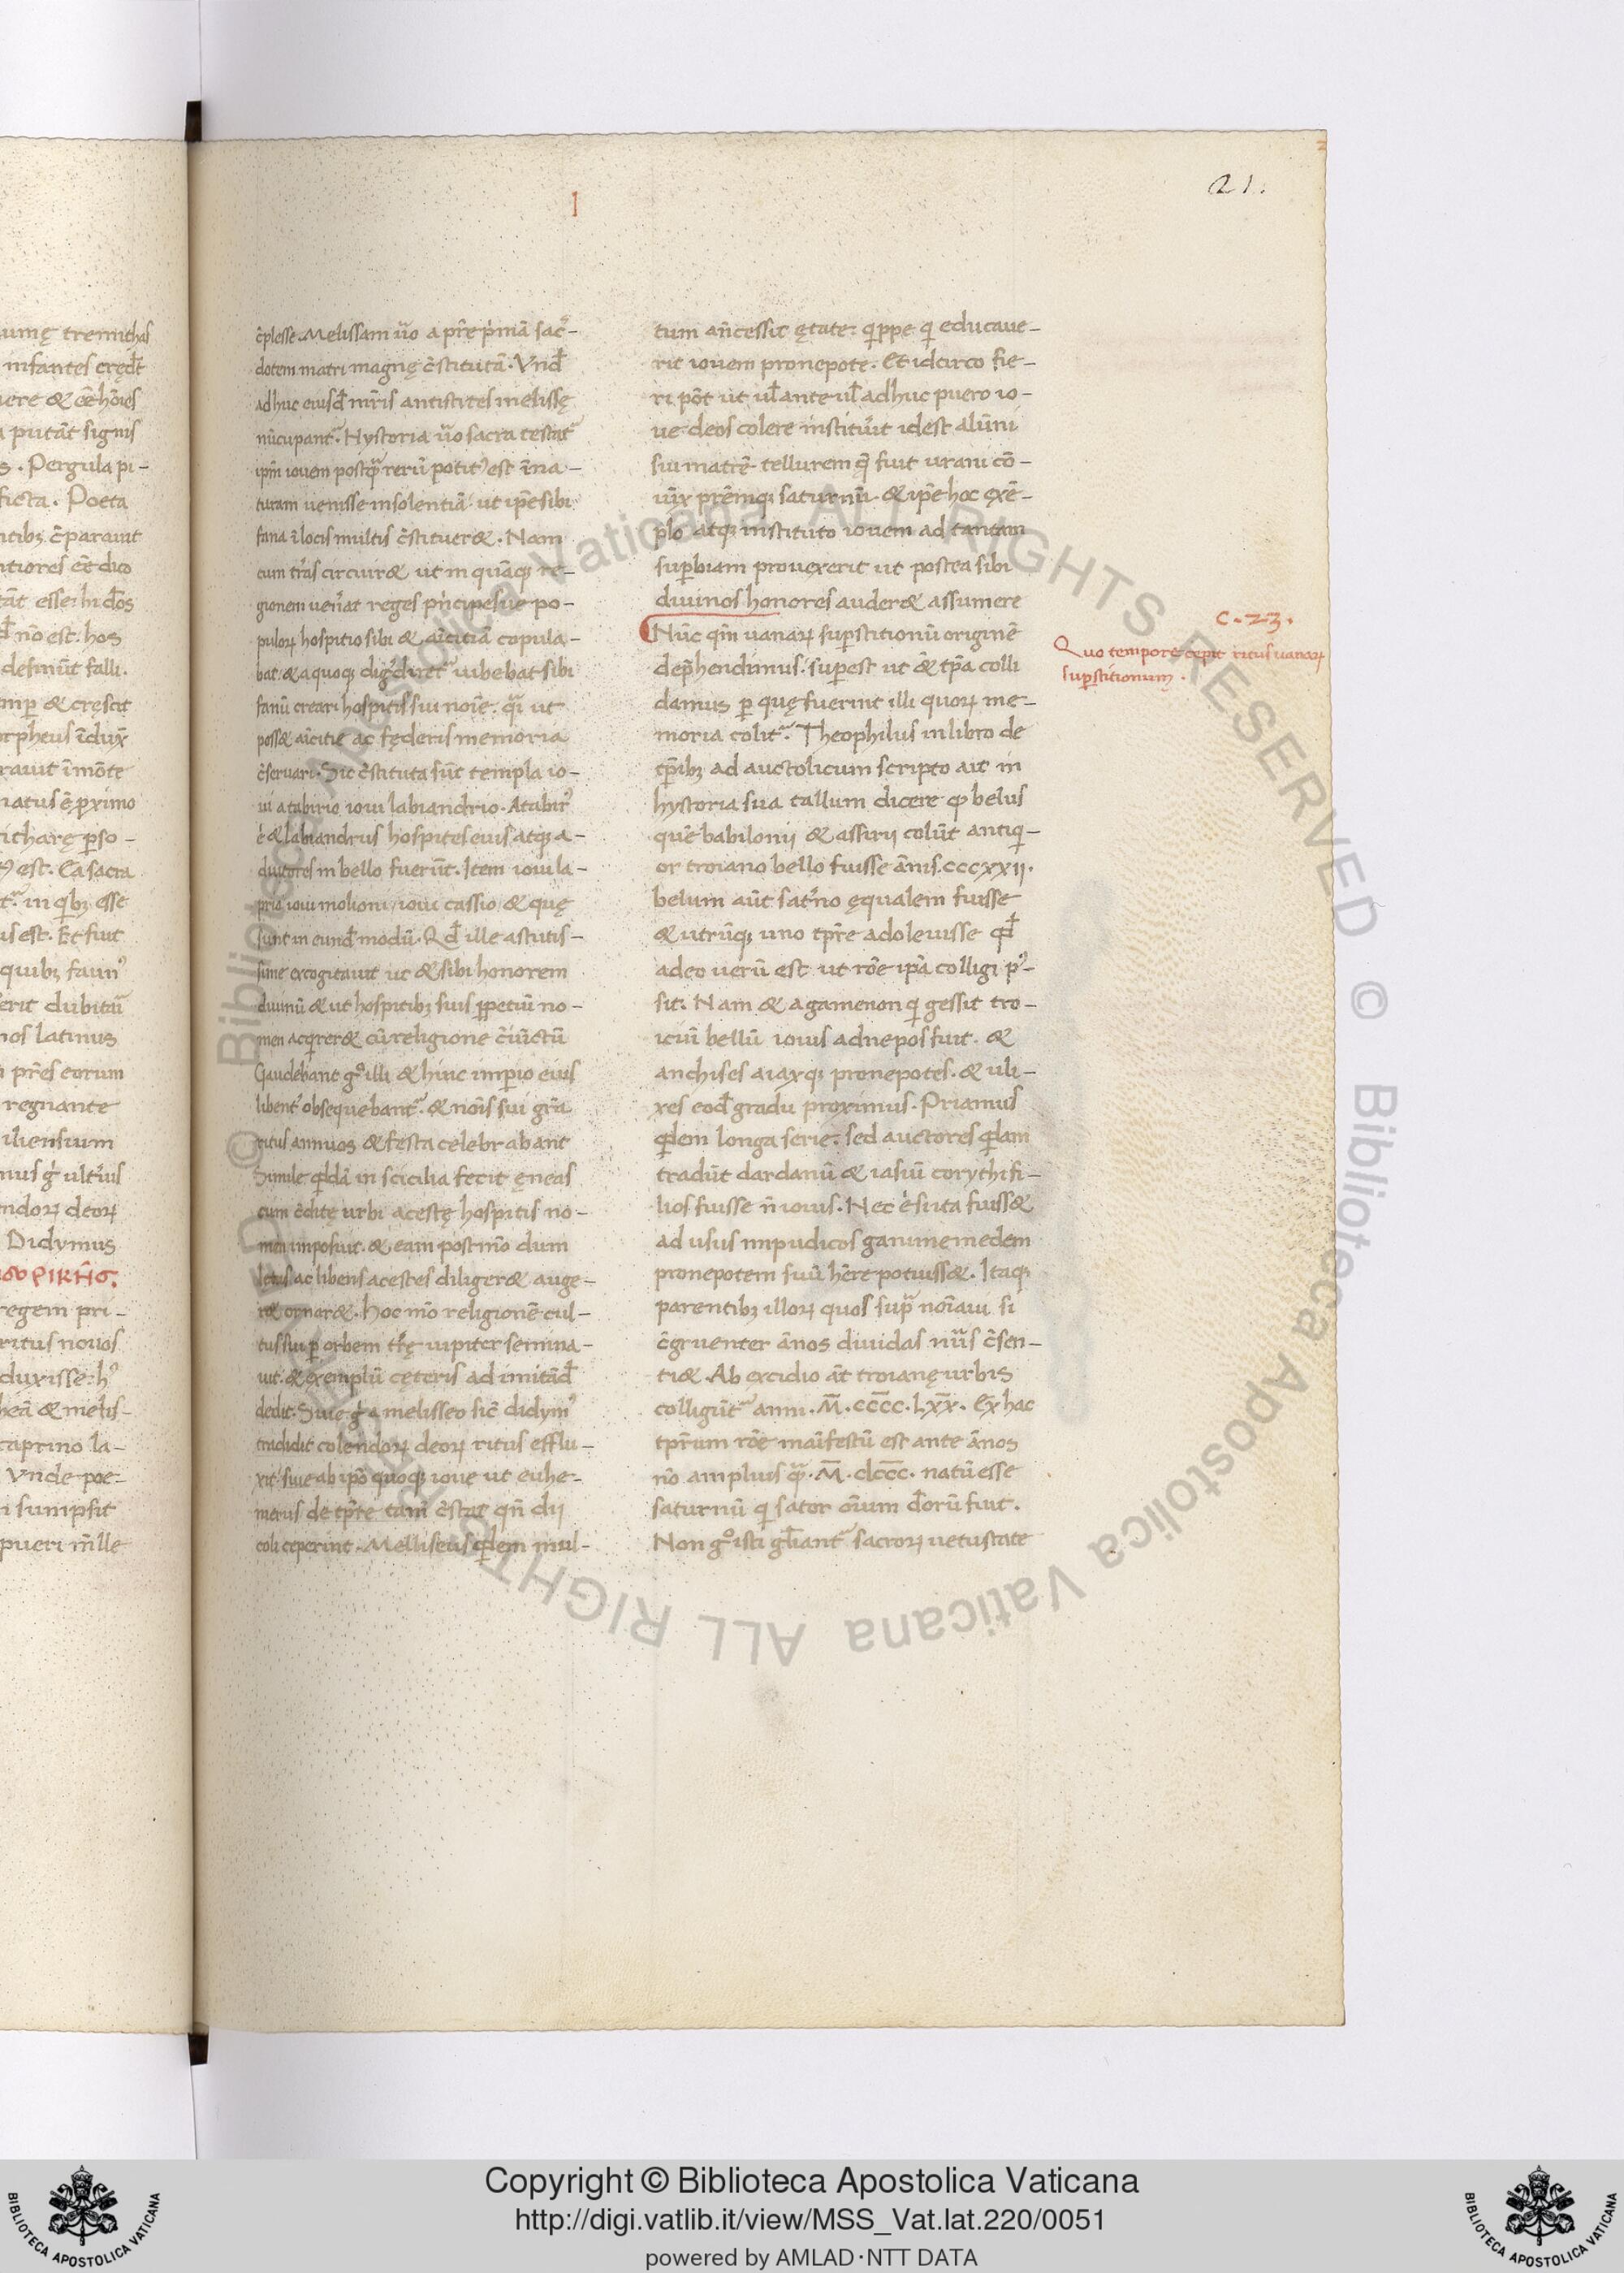 21.
I
umę tremithas
infantes cręd̄t
uere & eē hoīes
putāt signis
s. Pergula pi-
ficta. Poeta
ntibꝫ c̄parauit
tiores eē dico
tāt esse: hi d̄os
nō est: hos
desinūt falli.
& cręscit
orpheus īdux̄
rauit ī mōte
natus ē ꝓximo
citharę ꝑso-
est. Ea sacra
in qbꝫ esse
us est. Et fuit
quibꝫ faunꝰ
erit dubitat᷑
nos latinus
pr̄es eorum
regnante
iliensium
ndoꝝ deoꝝ
Didymus
regem pri-
ritus nouos
duxisse: hꝰ
heā & melis-
caprino la-
Vnde poe-
i sumpsit
pueri mlle
c̄plesse. Melissam ūo a pr̄e pͥmā sac̄-
dotem matri magnę c̄stitutā. Vnd̄
adhuc eiusd̄ mr̄is antistites melissę
nūcupant᷑. Hystoria ūo sacra testat᷑
ipm̄ iouem postqᷓ rerū potitꝰ est ī na-
turam uenisse insolentiā ut ip̄e sibi
fana ī locis multis c̄stituer&. Nam
cum tr̄as circuir& ut in quācqꝫ re-
gionem uen̄at reges pͥncipesue po-
puloꝝ hospitio sibi & aīcitiā copula-
bat. & a quoqꝫ digr̄diret᷑ iubebat sibi
fanū creari hospitis sui noīe. qᷓi ut
poss& aīcitie ac fęderis memoria
c̄seruari. Sic c̄stituta sūt templa io-
ui atabirio ioui labiandrio. Atabirꝰ
ē & labiandrus hospites eius atqꝫ a-
diutores in bello fuerūt. Item ioui la-
prio ioui molioni, ioui cassio & quę
sunt in eund̄ modū. Qd̄ ille astutis-
sime excogitauit ut & sibi honorem
diuinū & ut hospitibꝫ suis ꝑpetuū no-
men acqͥrer& cū religione c̄iūctū
Gaudebant gͦ illi & huic imꝑio eius
libent̄ obsequebant᷑. & noīs sui gr̄a
ritus annuos & festa celebrabant
Simile qͥddā in scicilia fecit ęneas
cum c̄ditę urbi acestę hospitis no-
men imposuit. & eam postmō dum
letus ac libens acestes diliger& auge-
r& ornar&. Hoc mō religionē cul-
tus sui ꝑ orbem tr̄ę iupiter semina-
uit. & exemplū cęteris ad imitād̄
dedit. Siue gͥ a melisseo sic̄ didymꝰ
tradidit colendoꝝ deoꝝ ritus efflu-
xit: siue ab ip̄o quoqꝫ ioue ut euhe-
merus de tp̄re tam̄ c̄stat qn̄ dij
coli ceperint. Melliseus qͥdem mul-
tum an̄cessit ętate. qͥppe qͥ educaue-
rit iouem pronepotē. Et idcirco fie-
ri pōt ut ul̄ ante ul̄ adhuc puero io-
ue deos colere institūit idest alūni
sui matrē tellurem qᷓ fuit urani cō-
iūx prēmqꝫ saturnū. & ip̄e hoc ęxē-
plo atqꝫ instituto iouem ad tantam
suꝑbiam prouęxerit ut postea sibi
diuinos honores auder& assumere
Nūc qm̄ uanaꝝ suꝑstitionū originē
dep̄hendimus. suꝑest ut & tp̄a colli
damus ꝑ quę fuerint illi quoꝝ me-
moria colit᷑. Theophilus in libro de
tp̄ibꝫ ad auctolicum scripto ait in
hystoria sua tallum dicere ꝙ belus
quē babilonij & assirij colūt antiqͥ-
or troiano bello fuisse ānis. cccxxij.
belum aūt sat̄no ęqualem fuisse
& utrūqꝫ uno tp̄re adoleuisse qd̄
adeo uerū est ut rōe ip̄a colligi pꝰ-
sit. Nam & agamenon qͥ gessit tro-
icū bellū iouis adnepos fuit. &
anchises aiaxqꝫ pronepotes. & uli-
xes eod̄ gradu proximus. Priamus
qͥdem longa serie. sed auctores qͥdam
tradūt dardanū & iasiū corythi fi-
lios fuisse n̄ iouis. Nec ē sn̄ ita fuiss&
ad usus impudicos ganimemedem
pronepotem suū hēre potuiss&. Itaqꝫ
parentibꝫ illoꝝ quos supᷓ noīaui si
c̄gruenter ānos diuidas nūs c̄sen-
ti&. Ab excidio āt troianę urbis
colligūt᷑ anni. M̄. cccc. lxx̄. Ex hac
tp̄rum rōe maīfestū est ante ānos
nō amplius qᷓ. M̄. dcccc. natū esse
saturnū qͥ sator oīum d̄orū fuit.
Non gͦ isti gl̄iant᷑ sacroꝝ uetustate
c. 23.
Quo tempore cepit ritus uanaꝝ
suꝑstitionum.
Copyright © Biblioteca Apostolica Vaticana
http://digi.vatlib.it/view/MSS_Vat.lat.220/0051
powered by AMLAD·NTT DATA
BIBLIOTECA APOSTOLICA VATICANA
BIBLIOTECA APOSTOLICA VATICANA
© Biblioteca Apostolica Vaticana ALL RIGHTS RESERVED © Biblioteca Apostolica Vaticana ALL RIGHTS RESERVED